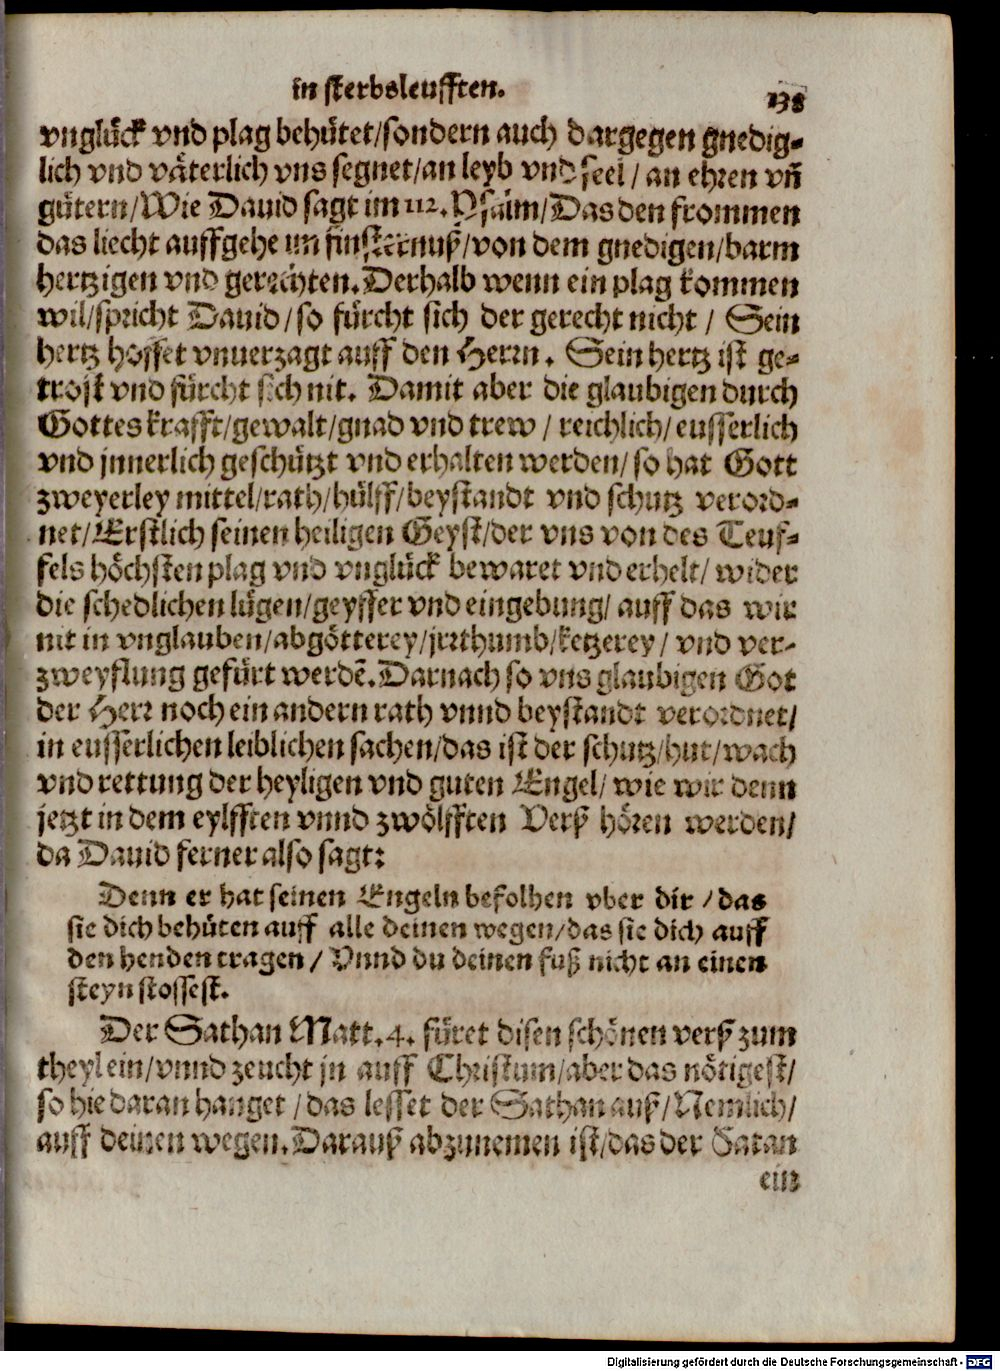 in sterbsleufften.
138
vnglück vnd plag behütet/sondern auch dargegen gnedig-
lich vnd väterlich vns segnet/an leyb vnd seel / an ehren vñ
gütern/Wie Dauid sagt im 112. Psalm/Das den frommen
das liecht auffgehe im finsternuß/von dem gnedigen/barm
hertzigen vnd gerechten. Derhalb wenn ein plag kommen
wil/spricht Dauid/so fürcht sich der gerecht nicht / Sein
hertz hoffet vnuerzagt auff den Herrn. Sein hertz ist ge-
trost vnd fürcht sich nit. Damit aber die glaubigen durch
Gottes krafft/gewalt/gnad vnd trew / reichlich/ eusserlich
vnd jnnerlich geschützt vnd erhalten werden/ so hat Gott
zweyerley mittel/rath/hülff/beystandt vnd schutz verord-
net/Erstlich seinen heiligen Geyst/der vns von des Teuf-
fels höchsten plag vnd vnglück bewaret vnd erhelt/ wider
die schedlichen lügen/geyffer vnd eingebung/ auff das wir
nit in vnglauben/abgötterey/jrrthumb/ketzerey / vnd ver-
zweyflung gefürt werdē. Darnach so vns glaubigen Got
der Herr noch ein andern rath vnnd beystandt verordnet/
in eusserlichen leiblichen sachen/das ist der schutz/hut/wach
vnd rettung der heyligen vnd guten Engel/ wie wir denn
jetzt in dem eylfften vnnd zwölfften Verß hören werden/
da Dauid ferner also sagt:
Denn er hat seinen Engeln befolhen vber dir / das
sie dich behüten auff alle deinen wegen/das sie dich auff
den henden tragen / Vnnd du deinen fuß nicht an einen
steyn stossest.
Der Sathan Matt. 4. füret disen schönen verß zum
theyl ein/vnnd zeucht jn auff Christum/aber das nötigest/
so hie daran hanget / das lesset der Sathan auß/Nemlich/
auff deinen wegen. Darauß abzunemen ist/das der Satan
ein
Digitalisierung gefördert durch die Deutsche Forschungsgemeinschaft - DFG